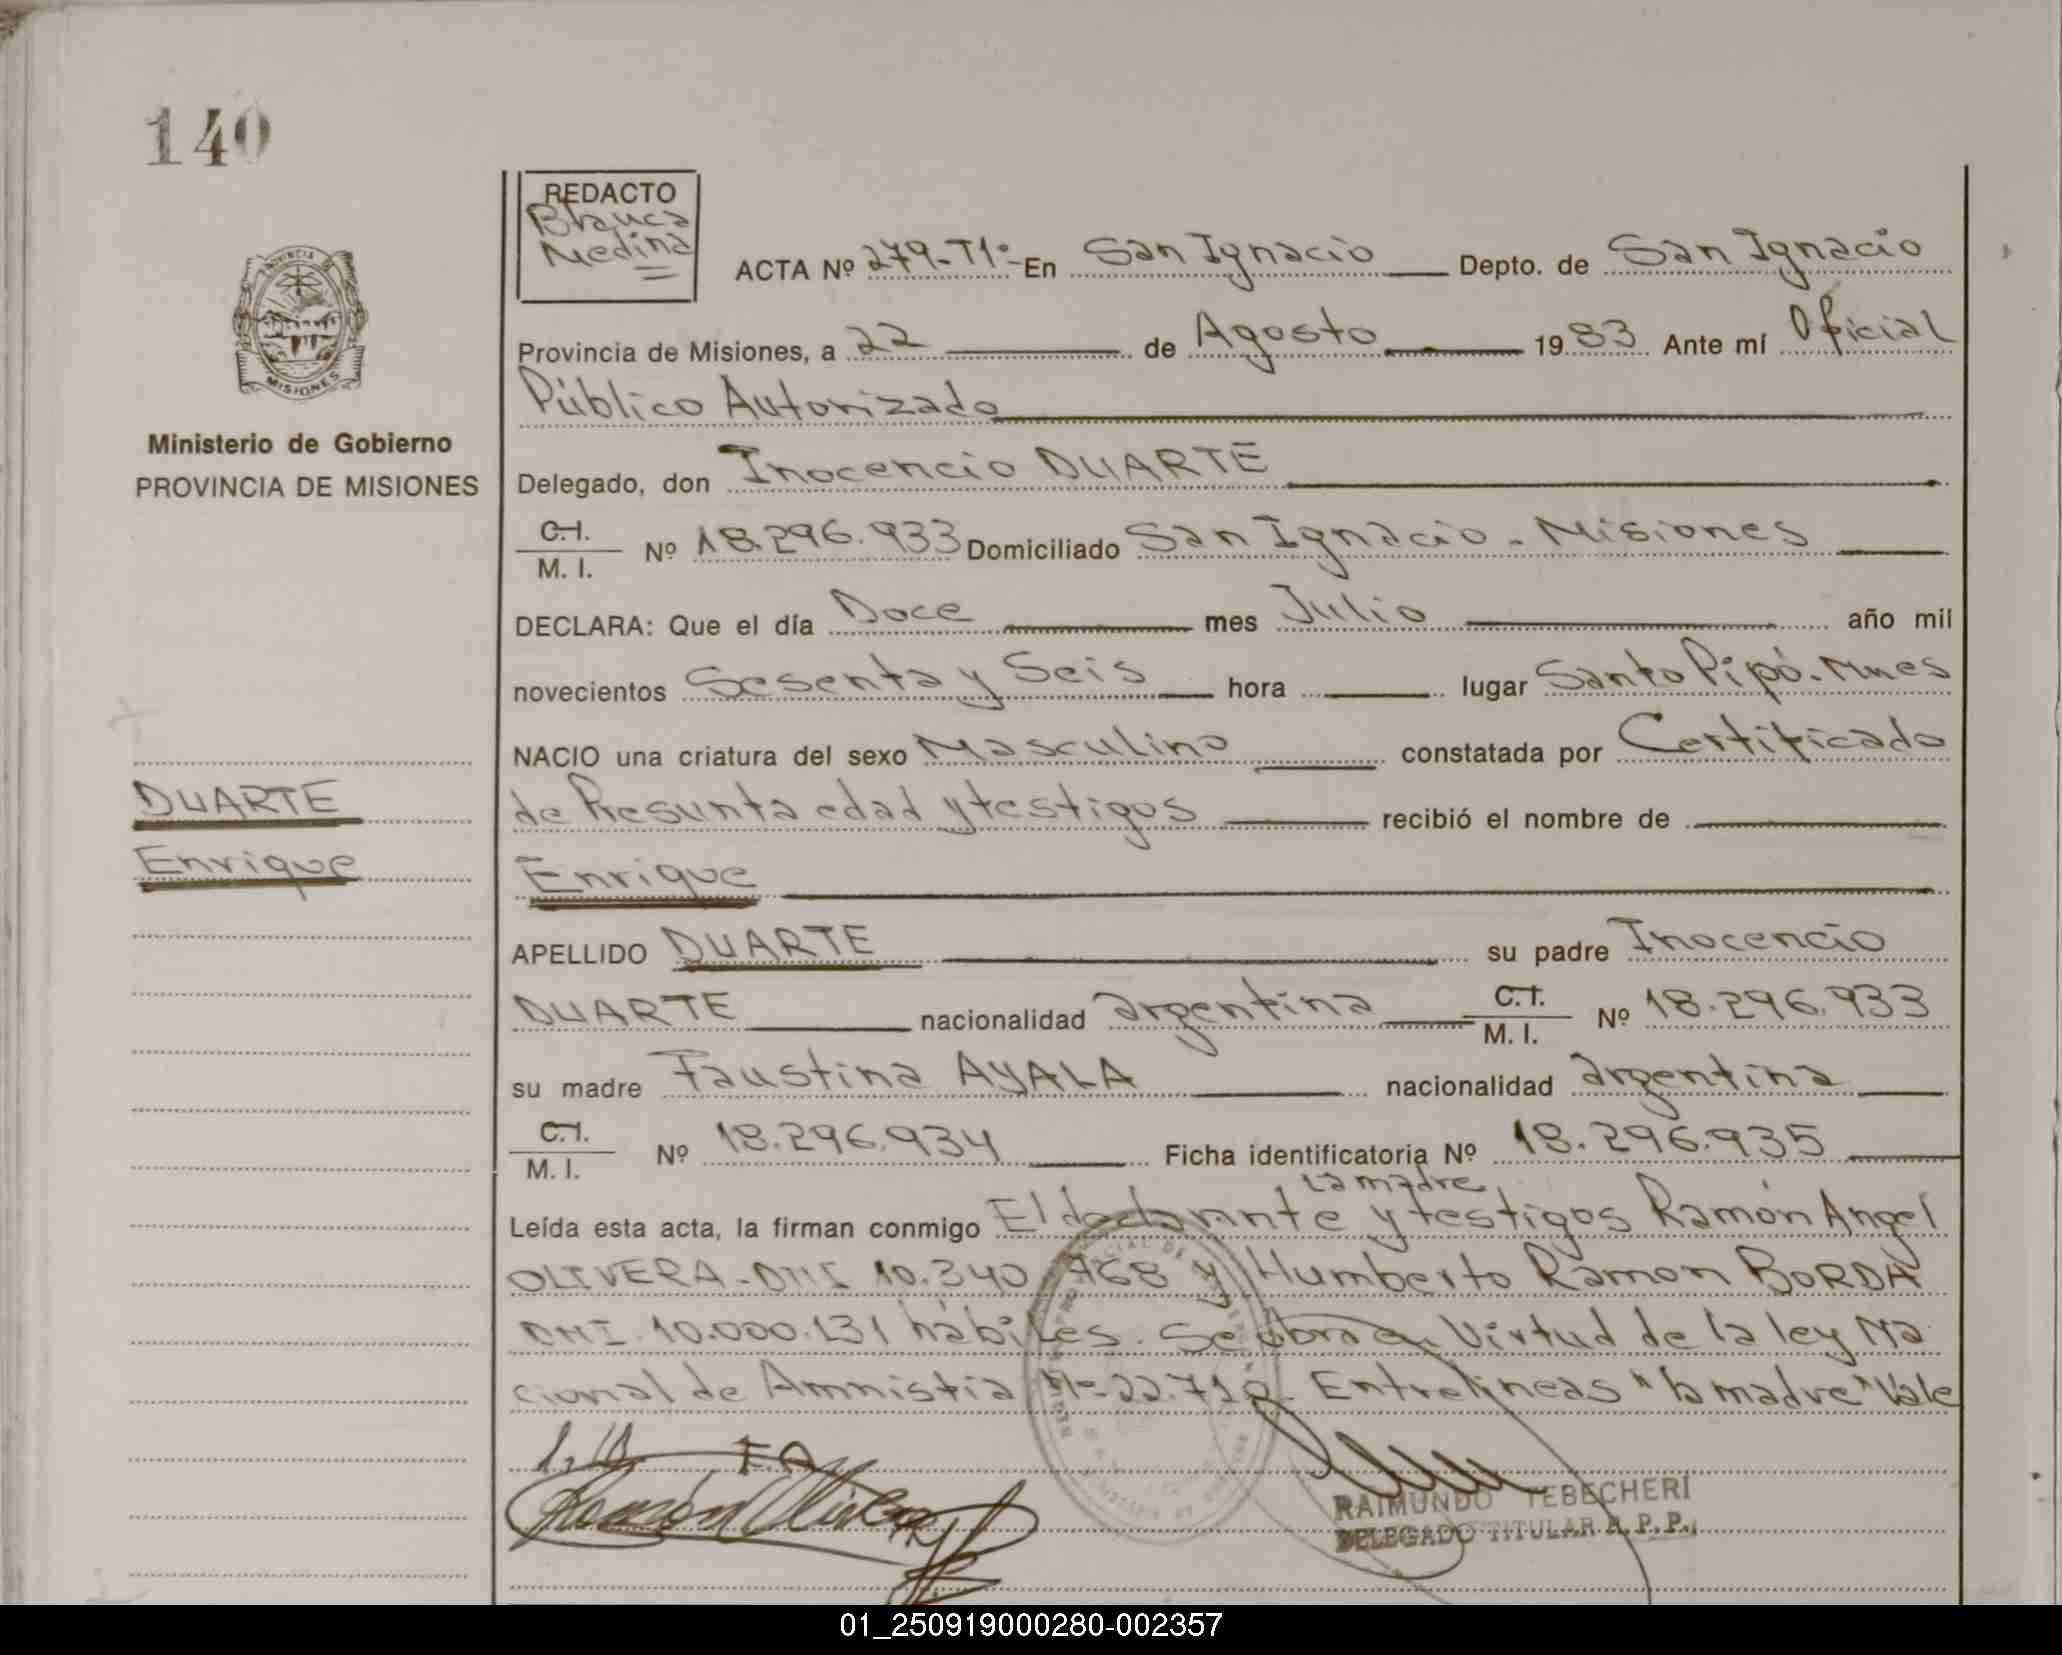 140
REDACTO
Blanca
Medina
ACTA Nº 279-T1º- En San Ignacio Depto. de San Ignacio
Provincia de Misiones, a 22 de Agosto 1983 Ante mí Oficial
Público Autorizado
Ministerio de Gobierno
PROVINCIA DE MISIONES
Delegado, don Inocencio DUARTE
C.I. M. I. Nº 18.296.933 Domiciliado San Ignacio - Misiones
DECLARA: Que el día Doce mes Julio año mil
novecientos Sesenta y Seis hora lugar Santo Pipó. Mnes
NACIO una criatura del sexo Masculino constatada por Certificado
DUARTE
de Presunta edad y testigos recibió el nombre de
Enrique
Enrique
APELLIDO DUARTE su padre Inocencio
DUARTE nacionalidad argentina C.I. M. I. Nº 18.296.933
su madre Faustina AYALA nacionalidad argentina
C.I. M. I. Nº 18.296.934 Ficha identificatoria Nº 18.296.935
la madre
Leída esta acta, la firman conmigo El declarante y testigos Ramón Angel
OLIVERA - DNI 10.340.768 y Humberto Ramon BORDA
DNI. 10.000.131 hábiles. Se obra en Virtud de la ley Na
cional de Amnistia Nº 22.710. Entrelineas "la madre" Vale
I. D F. A
Ramón Olivera
RAIMUNDO TEBECHERI
DELEGADO TITULAR R. P. P.
01_250919000280-002357